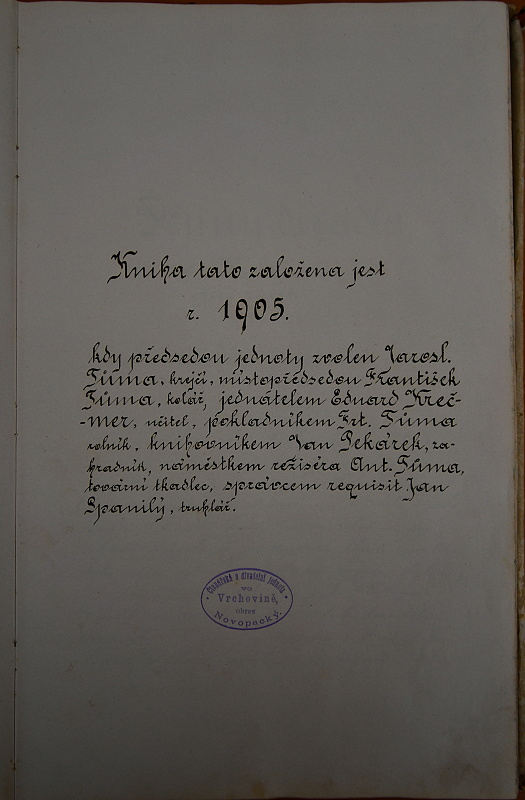 Kniha tato založena jest
r. 1905.
kdy předsedou jednoty zvolen Jarosl.
Tůma, krejčí, místopředsedou František
Tůma, kolář, jednatelem Eduard Kreč-
-mer, učitel, pokladníkem Frt. Tůma
rolník, knihovníkem Jan Pekárek, za-
hradník, náměstkem režiséra Ant. Tůma,
tovární tkadlec, správcem requisit Jan
Spanilý, truhlář.
Čtenářská a divadelní jednota
ve
Vrchovině,
okres
Novopacký.